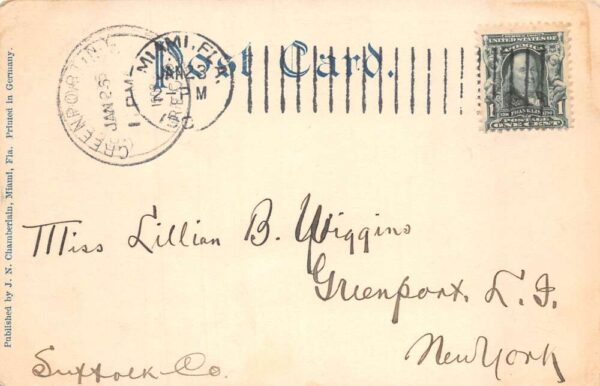 Post Card.
GREENPORT N.Y.
JAN 25
1 PM
REC'D
MIAMI, FLA.
JAN 23
PM
FRANKLIN
POSTAGE
ONE CENT
Published by J. N. Chamberlain, Miami, Fla. Printed in Germany.
Miss Lillian B. Wiggins
Greenport. L. I.
New York
Suffolk Co.